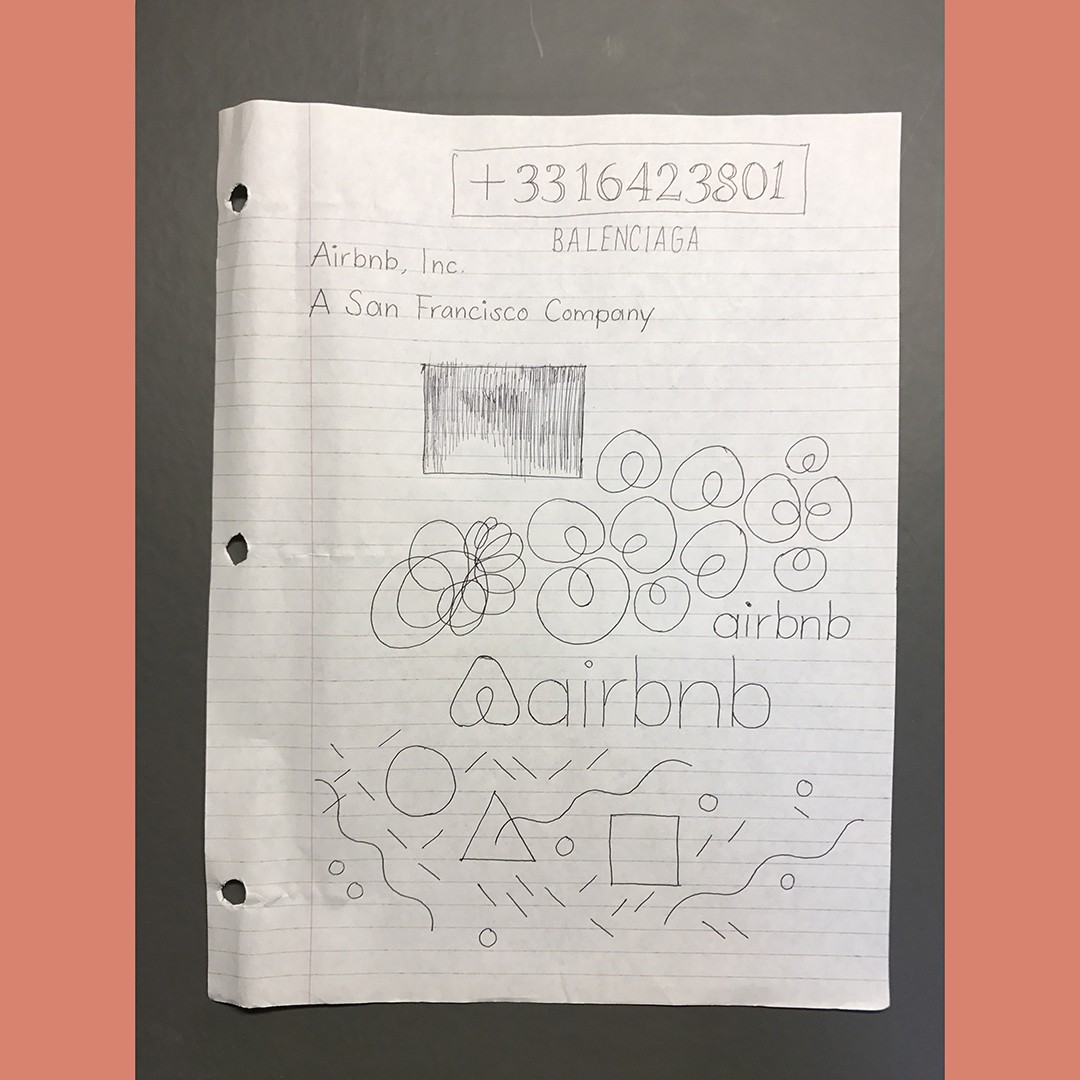 +3316423801
BALENCIAGA
Airbnb, Inc.
A San Francisco Company
airbnb
airbnb